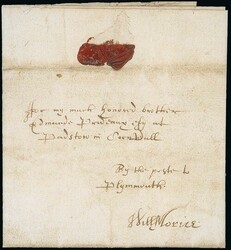 ffor my much honored brother
Edmunde Prideaux esq at
Padstow in Cornwall
By the poste to
Plymmouth
Will Morice